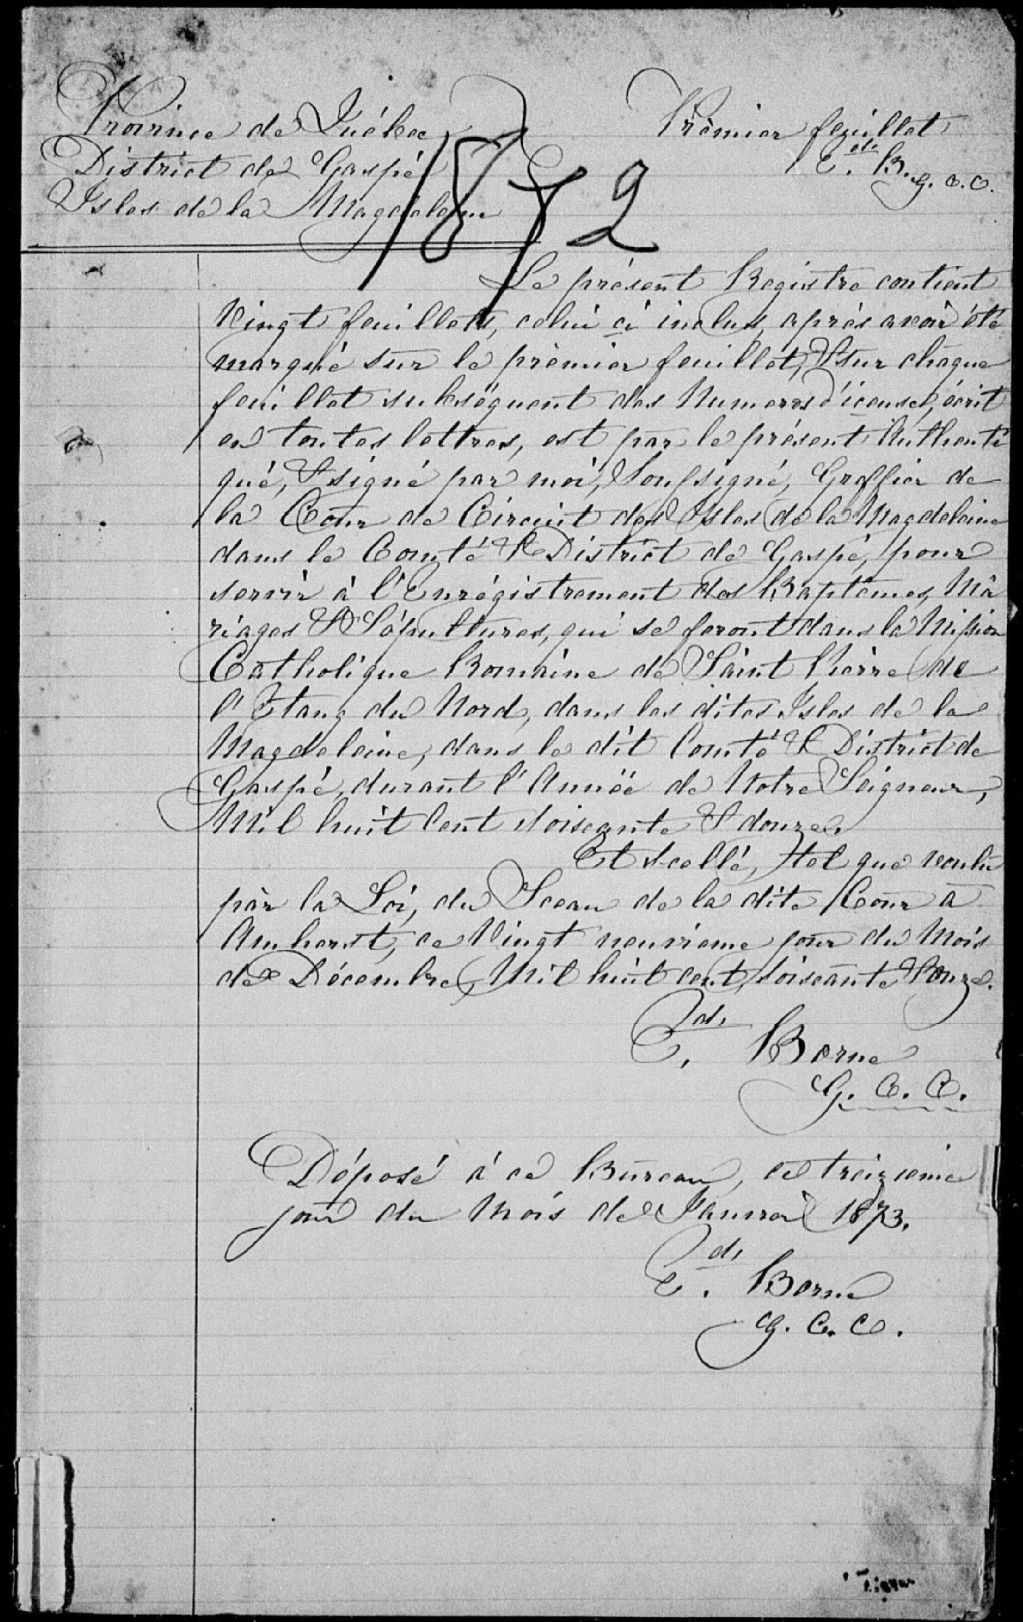 Province de Québec
District de Gaspé
Isles de la Magdeleine
1872
Prèmier feuillet
E.d B. g. c. c.
Le présent Registre contient
Vingt feuillets, celui ci inclus, aprés avoir été
marqué sur le prèmier feuillet, & sur chaque
feuillet subséquent des Numeros d'iceuse, écrit
en toutes lettres, est par le présent Authenti
qué, & signé par moi, Soussigné, Greffier de
la Cour de Circuit des Isles de la Magdeleine
dans le Comté & District de Gaspé, pour
servir à l'Enrégistrement des Baptêmes, Ma
riages & Sépultures, qui se feront dans la Mission
Catholique Romaine de Saint Pierre de
l'Etang du Nord, dans les dites Isles de la
Magdeleine, dans le dit Comté & District de
Gaspé, durant l'Année de Notre Seigneur,
Mil huit Cent soiscante & douze.
Et Scellé, tel que voulu
par la Loi, du Sceau de la dite Cour à
Amherst, ce Vingt neuvieme jour du Mois
de Décembre, Mil huit cent, soiscante & onze.
E.d Borne
G. C. C.
Déposé á ce Bureau, ce treizieme
jour du Mois de Janvier 1873.
E.d Borne
G. C. C.